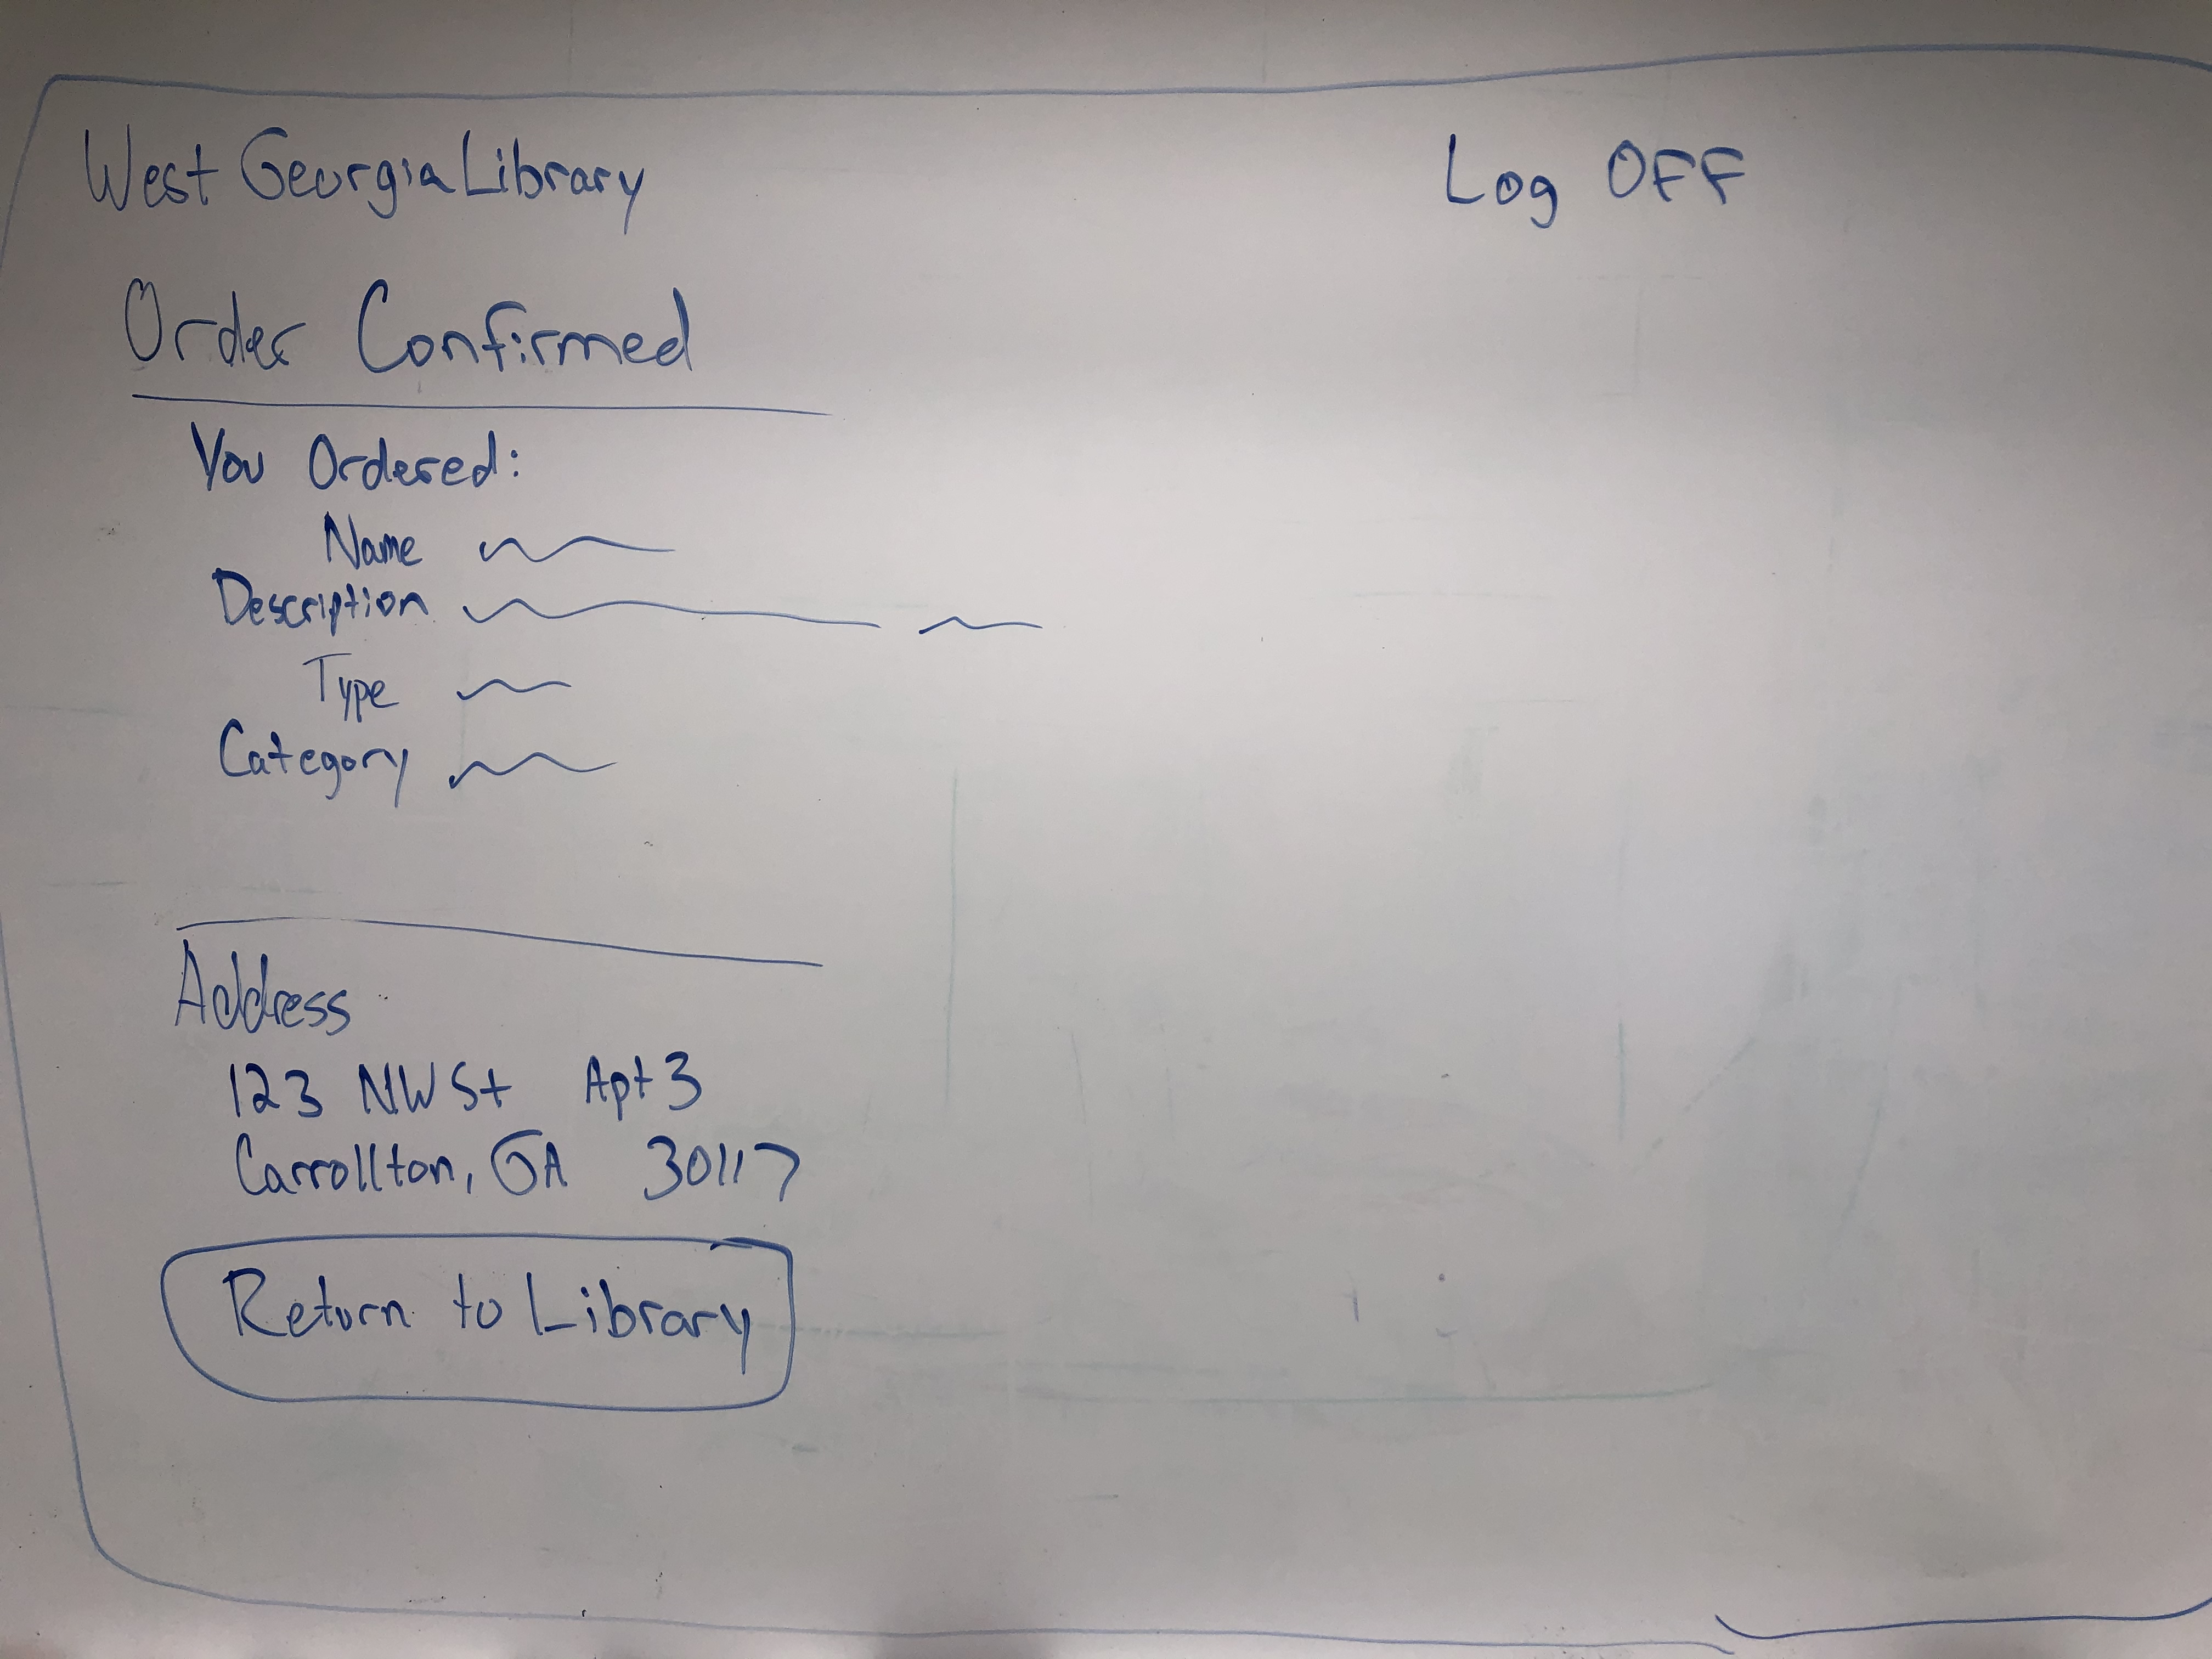 West Georgia Library
Log OFF
Order Confirmed
You Ordered:
Name
Description
Type
Category
Address
123 NW St Apt 3
Carrollton, GA 30117
Return to Library